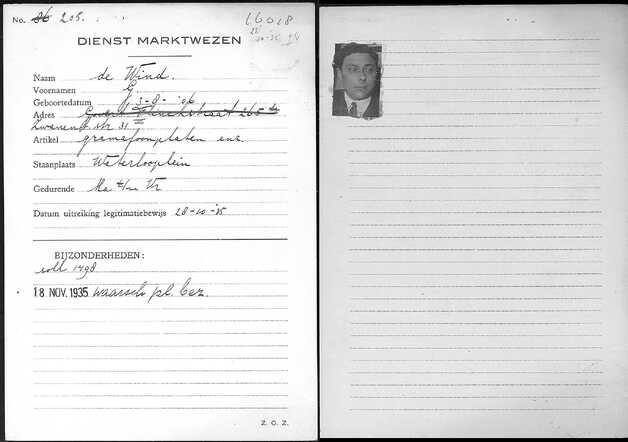 No. 36 205.
16018
DIENST MARKTWEZEN
Naam de Wind.
Voornamen G.
Geboortedatum 3-8-'06
Adres Govert Flinckstraat 265
Zwanenb. str 31
Artikel gramofoonplaten enz.
Staanplaats Waterlooplein
Gedurende Ma t/m Vr
Datum uitreiking legitimatiebewijs 28-10-'35
BIJZONDERHEDEN:
voll 1498
18 NOV. 1935 waarsch pl. bez.
Z. O. Z.